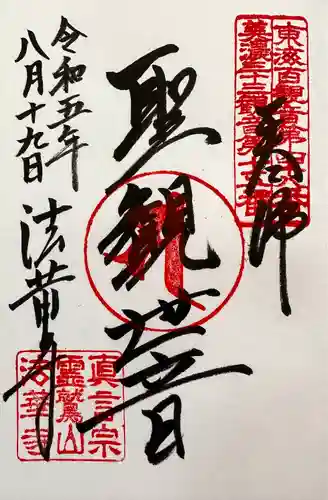 東海百観音第四十八番
美濃三十三観音第十五番
奉拝
聖観世音
令和五年
八月十九日
法華寺
真言宗
霊鷲山
法華寺